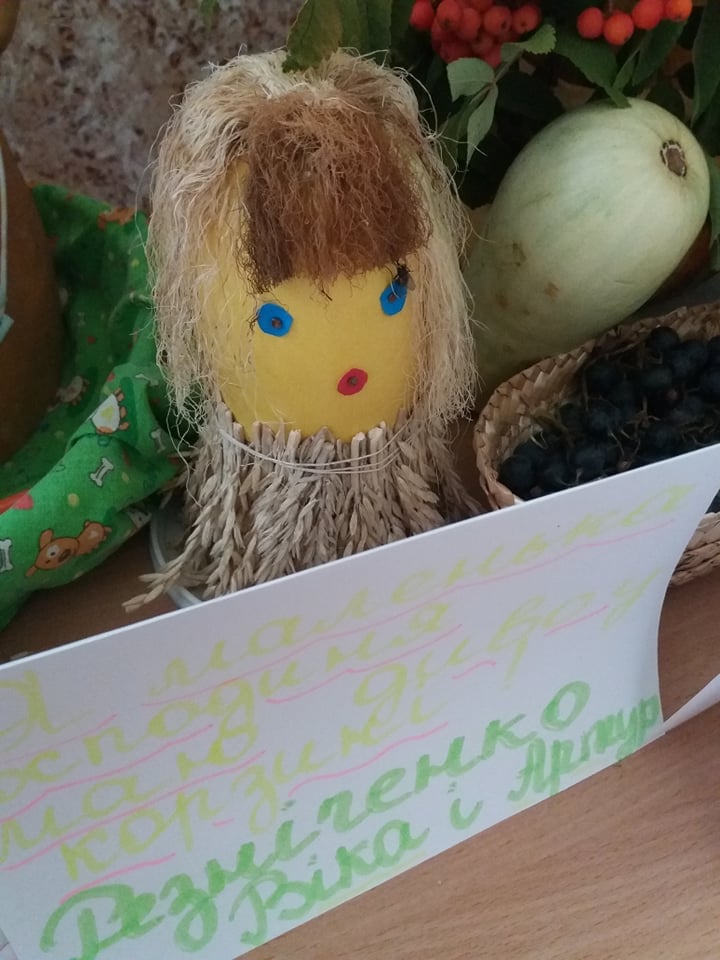 Я маленька
господиня
маю диво у
корзині!
Резніченко
Віка і Артур